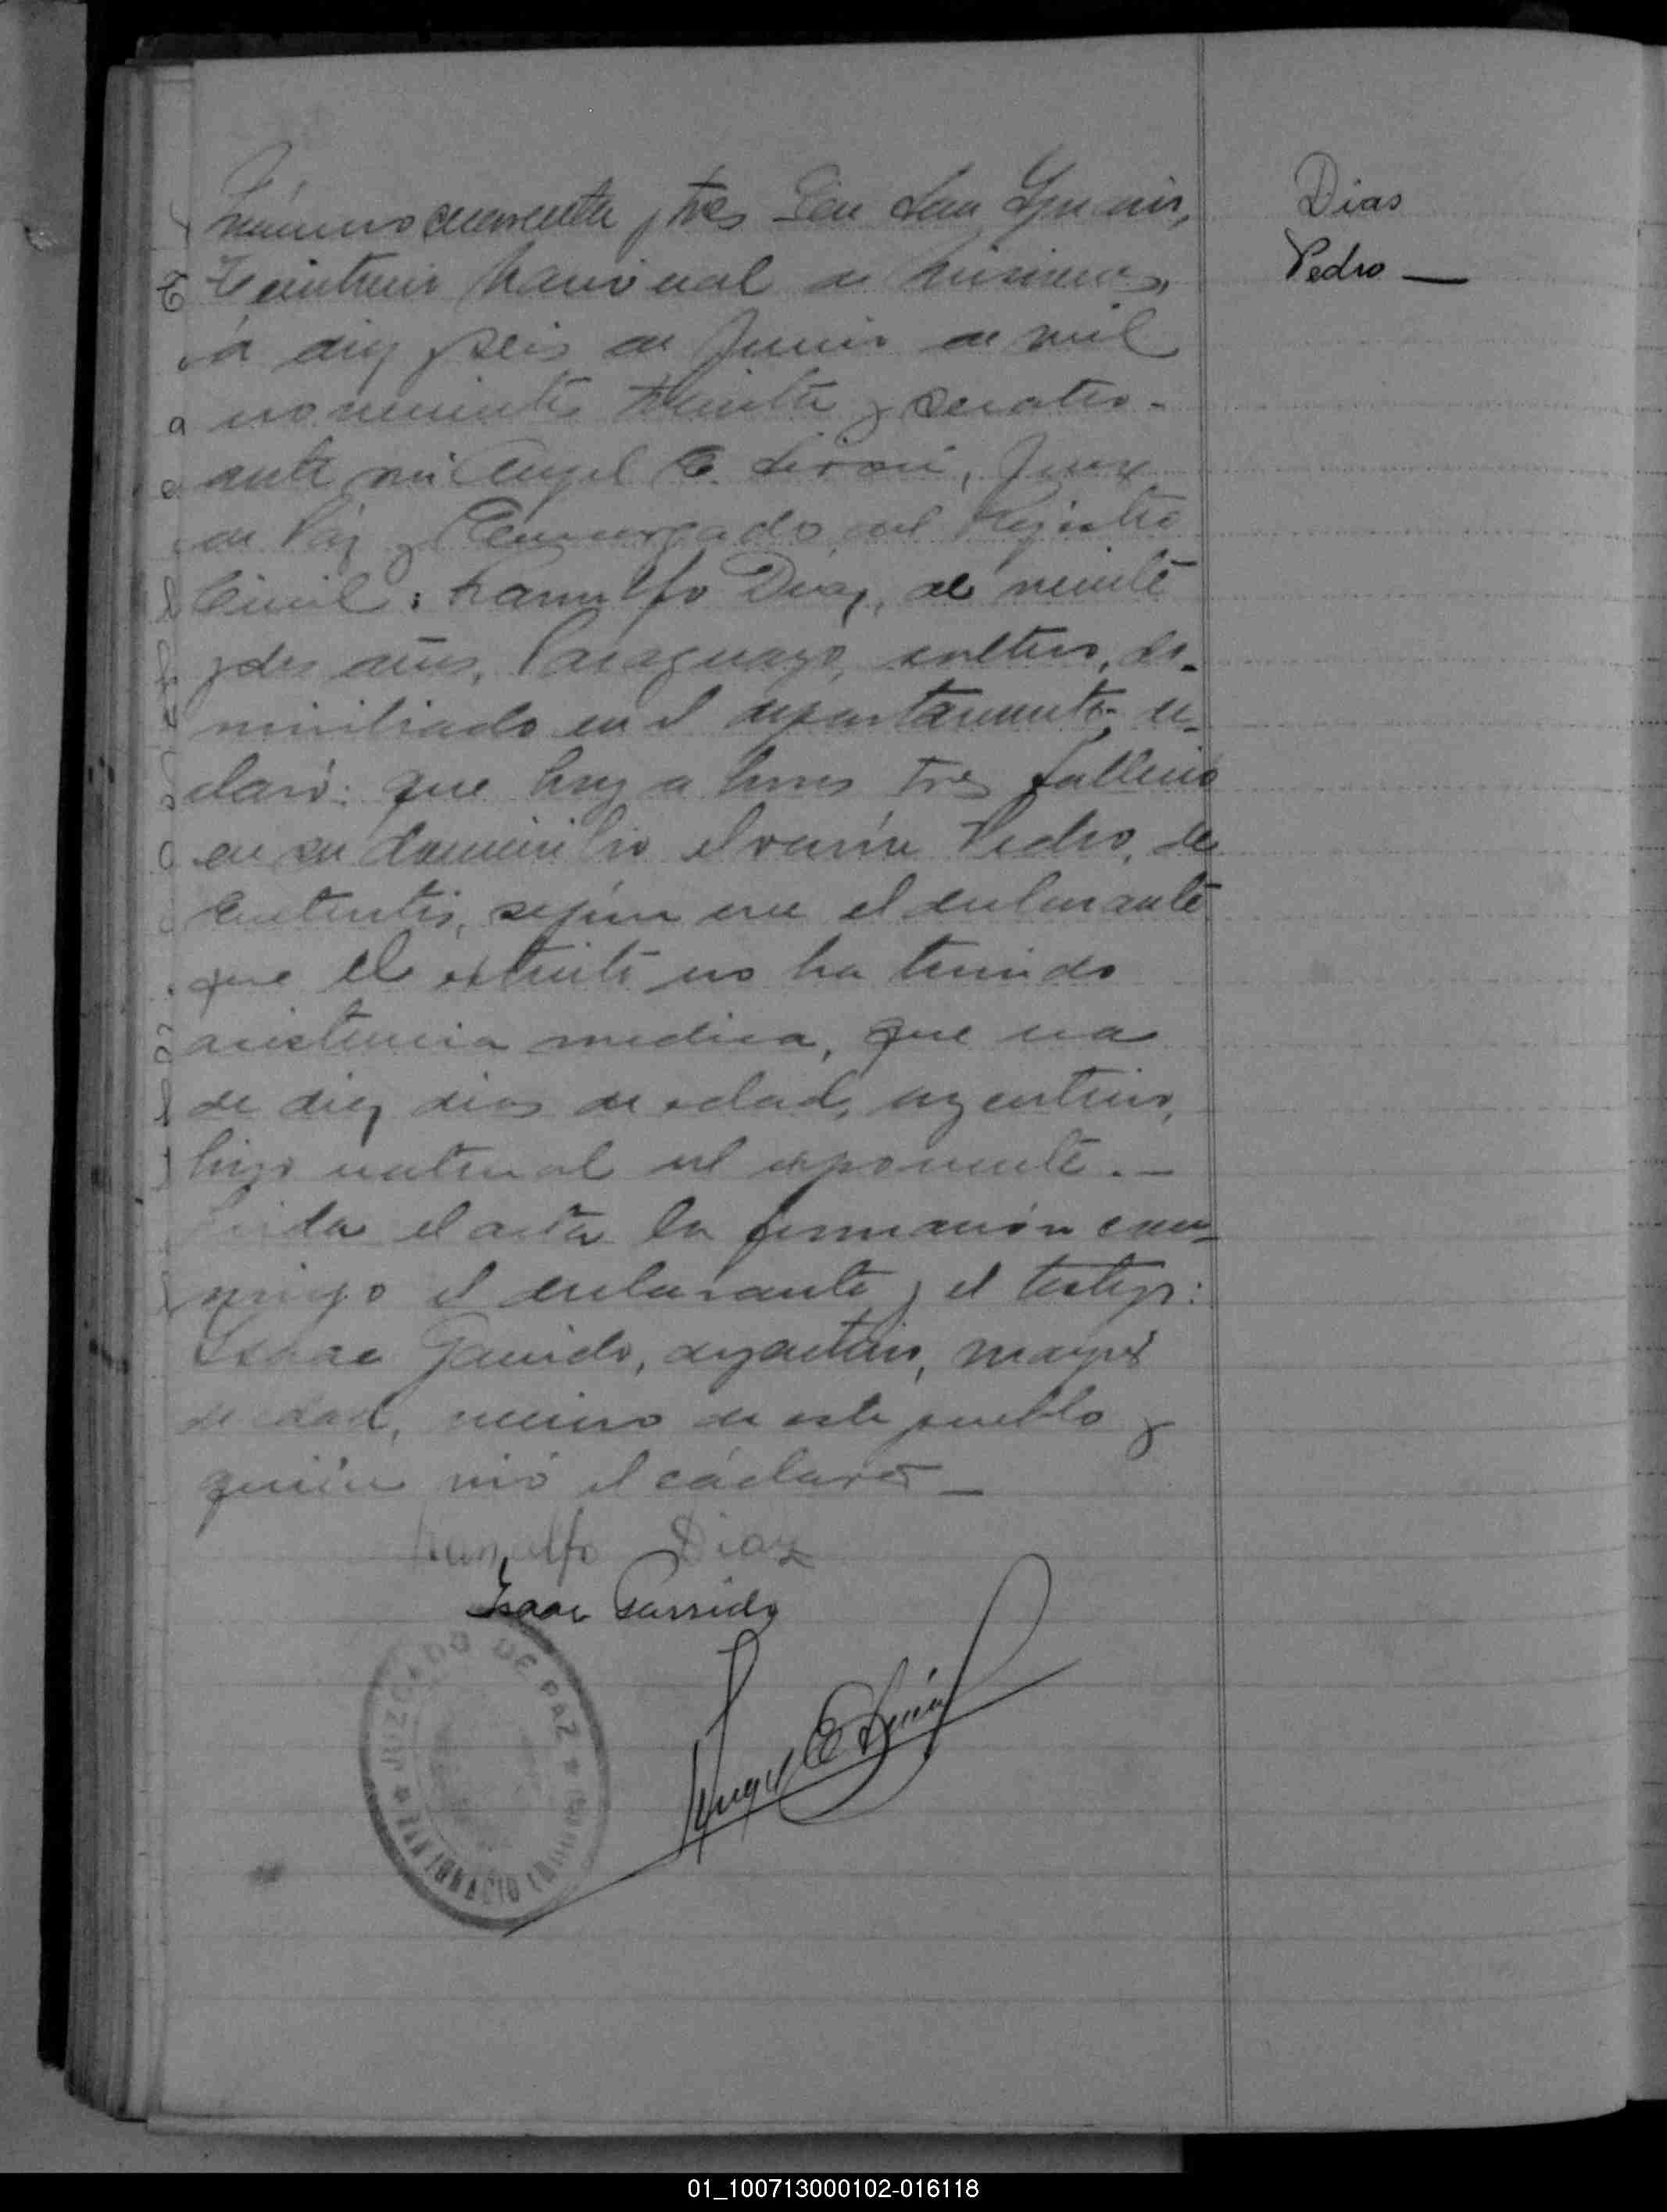 Número cuarenta y tres En San Ignacio,
Territorio Nacional de Misiones,
á diez y seis de Junio de mil
novecientos treinta y cuatro-
ante mi Angel E. , Juez
de Páz y Encargado del Registro
Civil: Ranulfo Diaz, de veinte
y dos años, Paraguayo, soltero, do-
miciliado en el departamento de-
claró: que hoy a horas tres falleció
en su domicilio el varón Pedro, de
, según cree el declarante
que el extinto no ha tenido
asistencia medica, que era
de diez dias de edad, argentino,
hijo natural del exponente.-
Leida el acta la firmarón con-
migo el declarante y el testigo:
Isaac Garrido, argentino, mayor
de edad, vecino de este pueblo y
quién vió el cádaver-
Ranulfo Diaz
Isaac Garrido
Angel E
JUZGADO DE PAZ
SAN IGNACIO
Dias
Pedro —
01_100713000102-016118